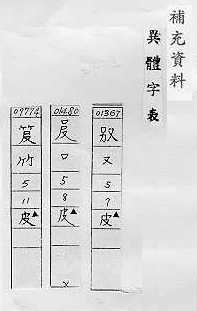 補充資料
異體字表
01367
又
5
7
皮▲
口
5
8
皮▲
09774
竹
5
11
皮▲